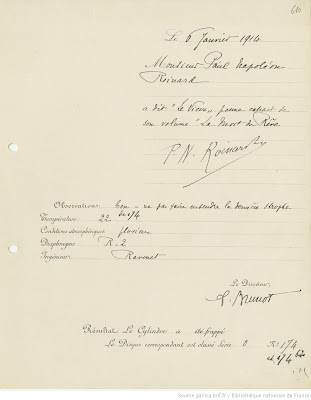 60
Le 6 Janvier 1914
Monsieur Paul Napoléon
Roinard
a dit "le Vieux", poème extrait de
son volume "La Mort du Rêve
P. N. Roinard
Observations: ne pas faire entendre la dernière strophe
de 174
Température 22
Conditions atmosphériques pluvieux
Diaphragme R. 2
Ingénieur Ravenet
Le Directeur,
F. Brunot
Résultat Le Cylindre a été frappé
Le Disque correspondant est classé Série O No 174
et 174 bis
Source gallica.bnf.fr / Bibliothèque nationale de France